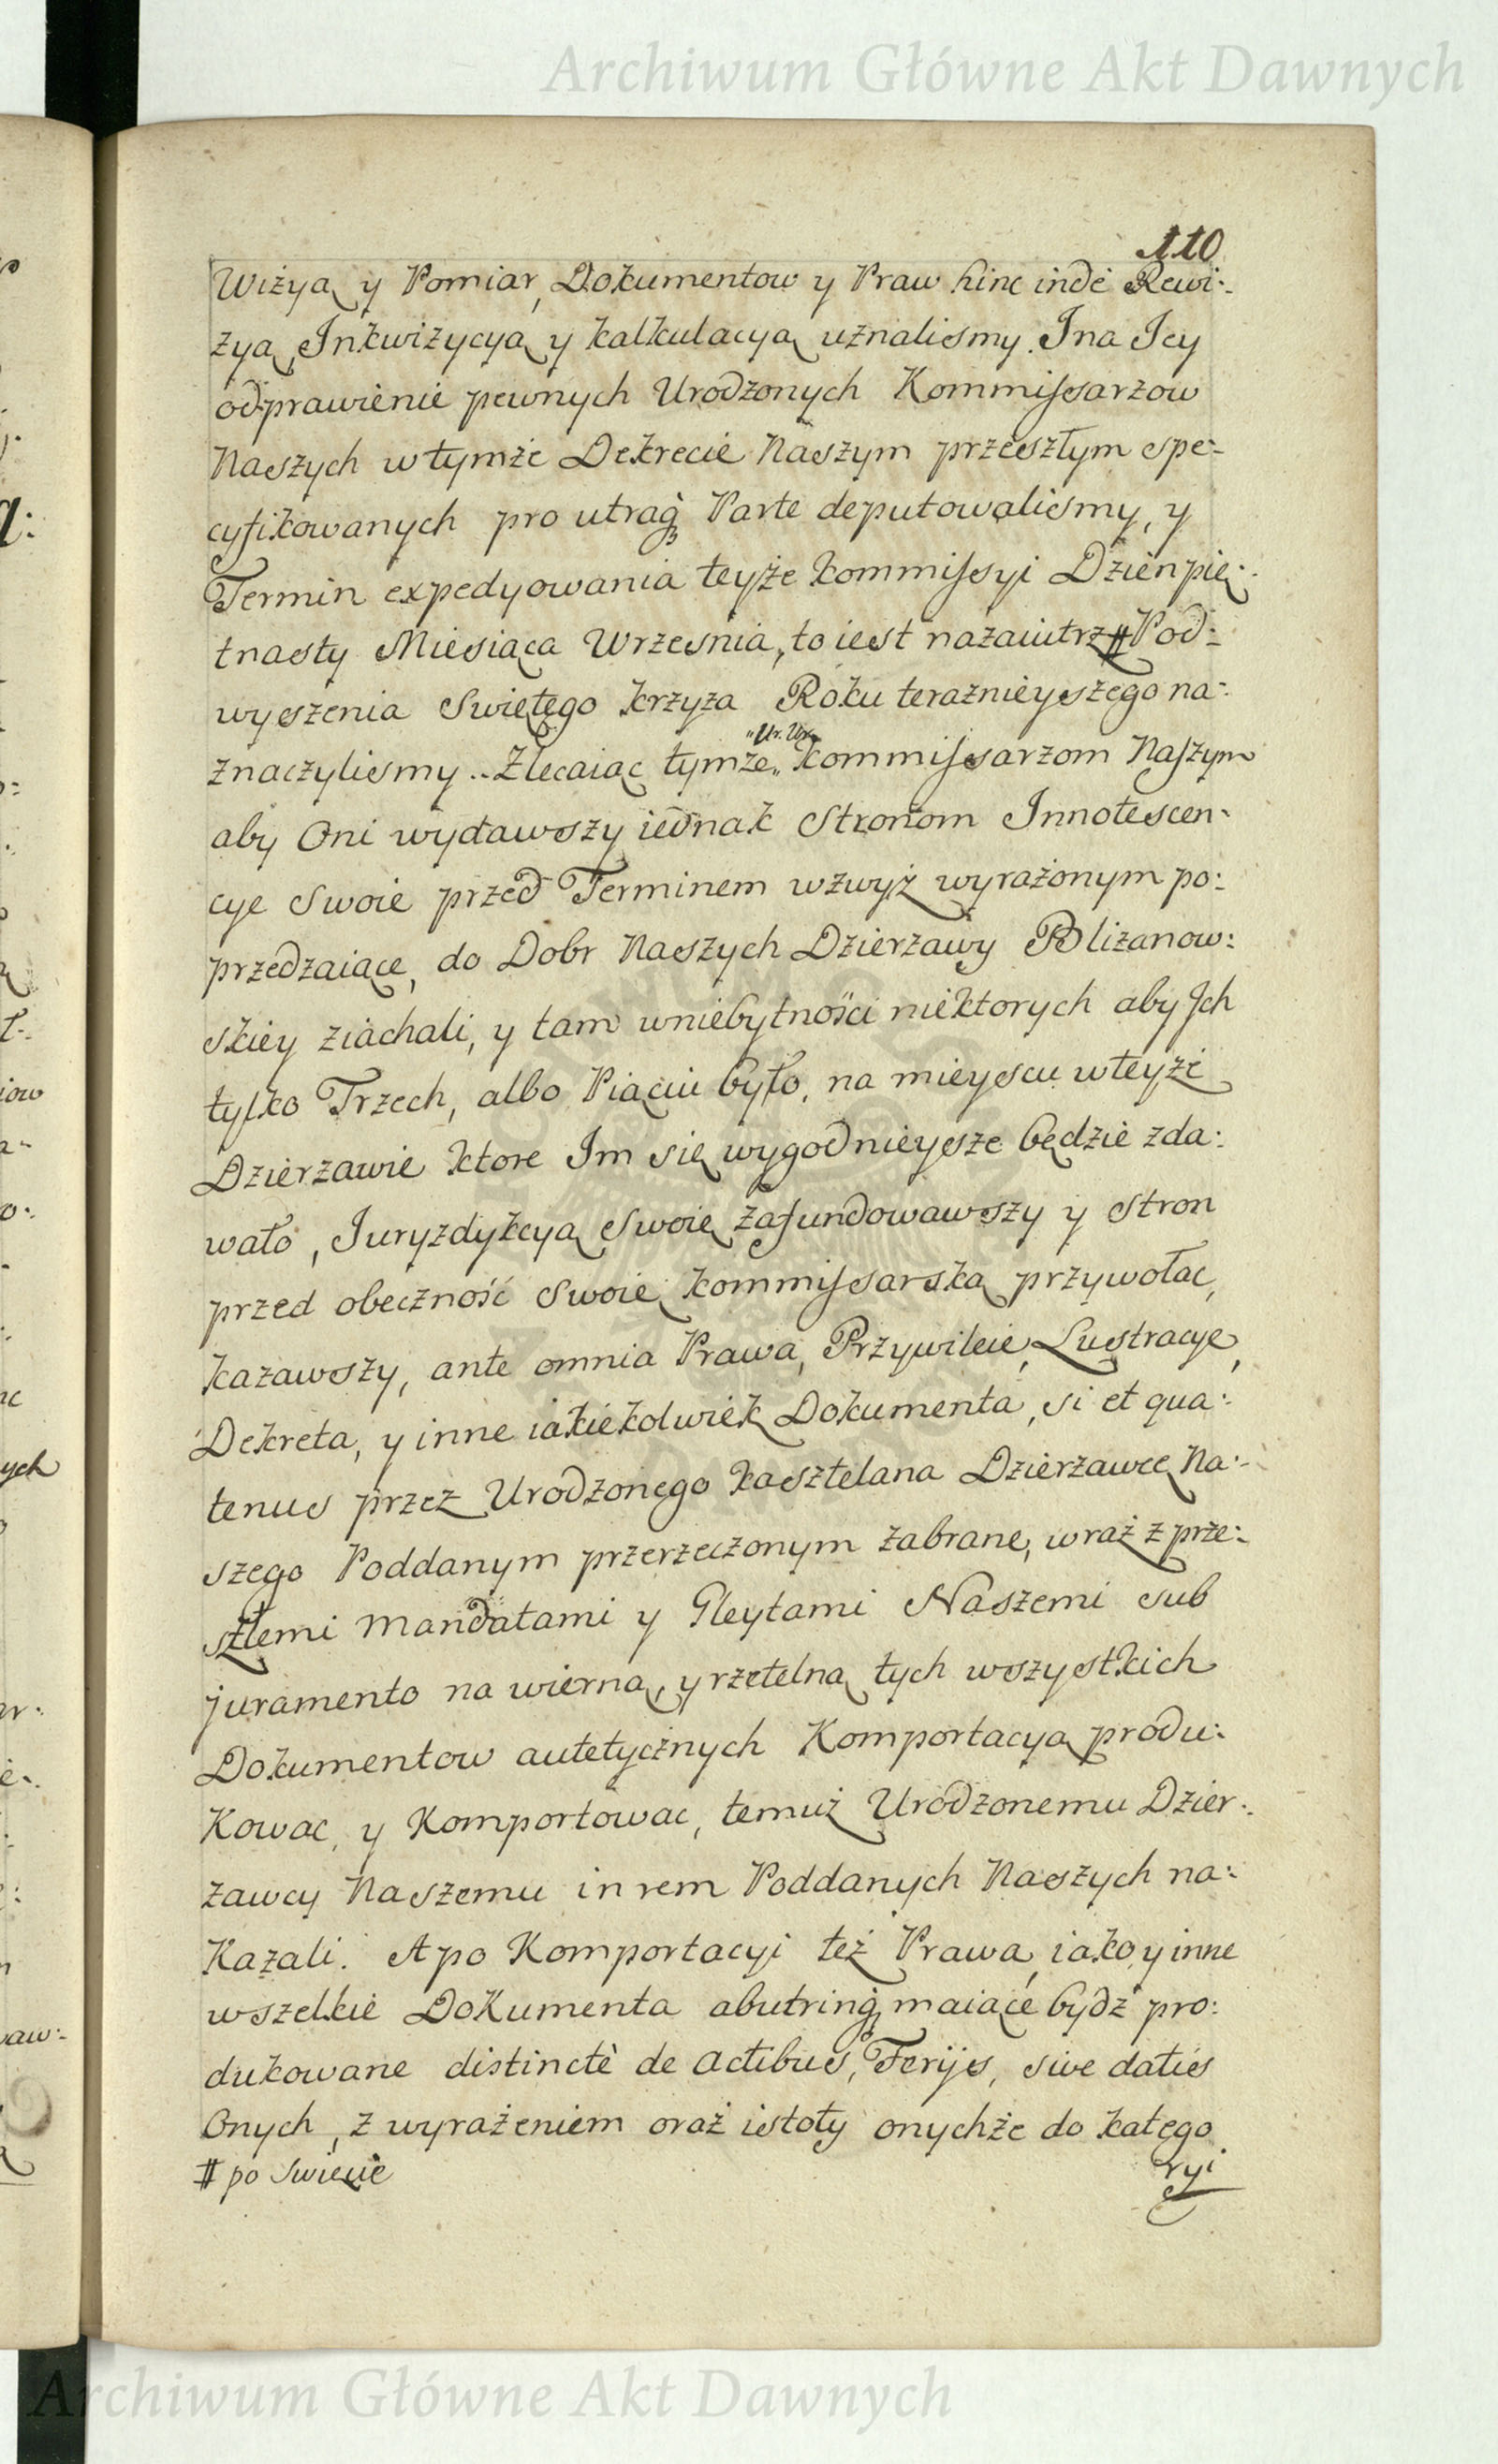 Archiwum Główne Akt Dawnych
110
Wiżyą y Pomiar, Dokumentow y Praw hinc indè Rewi:
żyą, Inkwiżycyą y kalkulacyą użnalismy. I na Iey
odprawienie pewnych Urodzonych Kommissarzow
Naszych w tymże Dekrecie Naszym przeszłym spe:
cyfikowanych pro utraq; Parte deputowalismy, y
Termin expedyowania teyże kommissyi Dzień pię:
tnasty Miesiąca Wrzesnia, to iest nazaiutrz # Pod:
wyszenia Swiętego krzyża Roku teraznieyszego na:
znaczylismy.. Zlecaiąc tymże „ Ur. Ur. „ kommissarzom Naszym
aby Oni wydawszy iednak Stronom Innotescen:
cye Swoie przed Terminem wzwyż wyrażonym po:
przedzaiące, do Dobr Naszych Dzierzawy Blizanow:
skiey ziachali, y tam w niebytności niektorych aby Ich
tylko Trzech, albo Piąciu było, na mieyscu w teyże
Dzierzawie ktore Im się wygodnieysze będzie zda:
wało, Juryzdykcyą Swoię zafundowawszy y Stron
przed obeczność Swoię kommissarską przywołac,
kazawszy, ante omnia Prawa, Przywileie, Lustracye,
Dekreta, y inne iakiekolwiek Dokumenta, si et qua:
tenus przez Urodzonego kasztelana Dzierzawcę Na:
szego Poddanym przerzeczonym zabrane, wraz z prze:
szłemi Mandatami y Gleytami Naszemi sub
juramento na wierną, y rzetelną tych wszystkich
Dokumentow autetycznych Komportacyą produ:
kowac, y Komportowac, temuż Urodzonemu Dzier:
zawcy Naszemu in rem Poddanych Naszych na:
kazali. A po Komportacyi też Prawa, iako y inne
wszelkie Dokumenta ab utrinq; maiące bydź pro:
dukowane distinctè de Actibus, Ferijs, sive datis
Onych, z wyrażeniem oraz istoty onychże do katego
# po Swięcie
ryi
Archiwum Główne Akt Dawnych